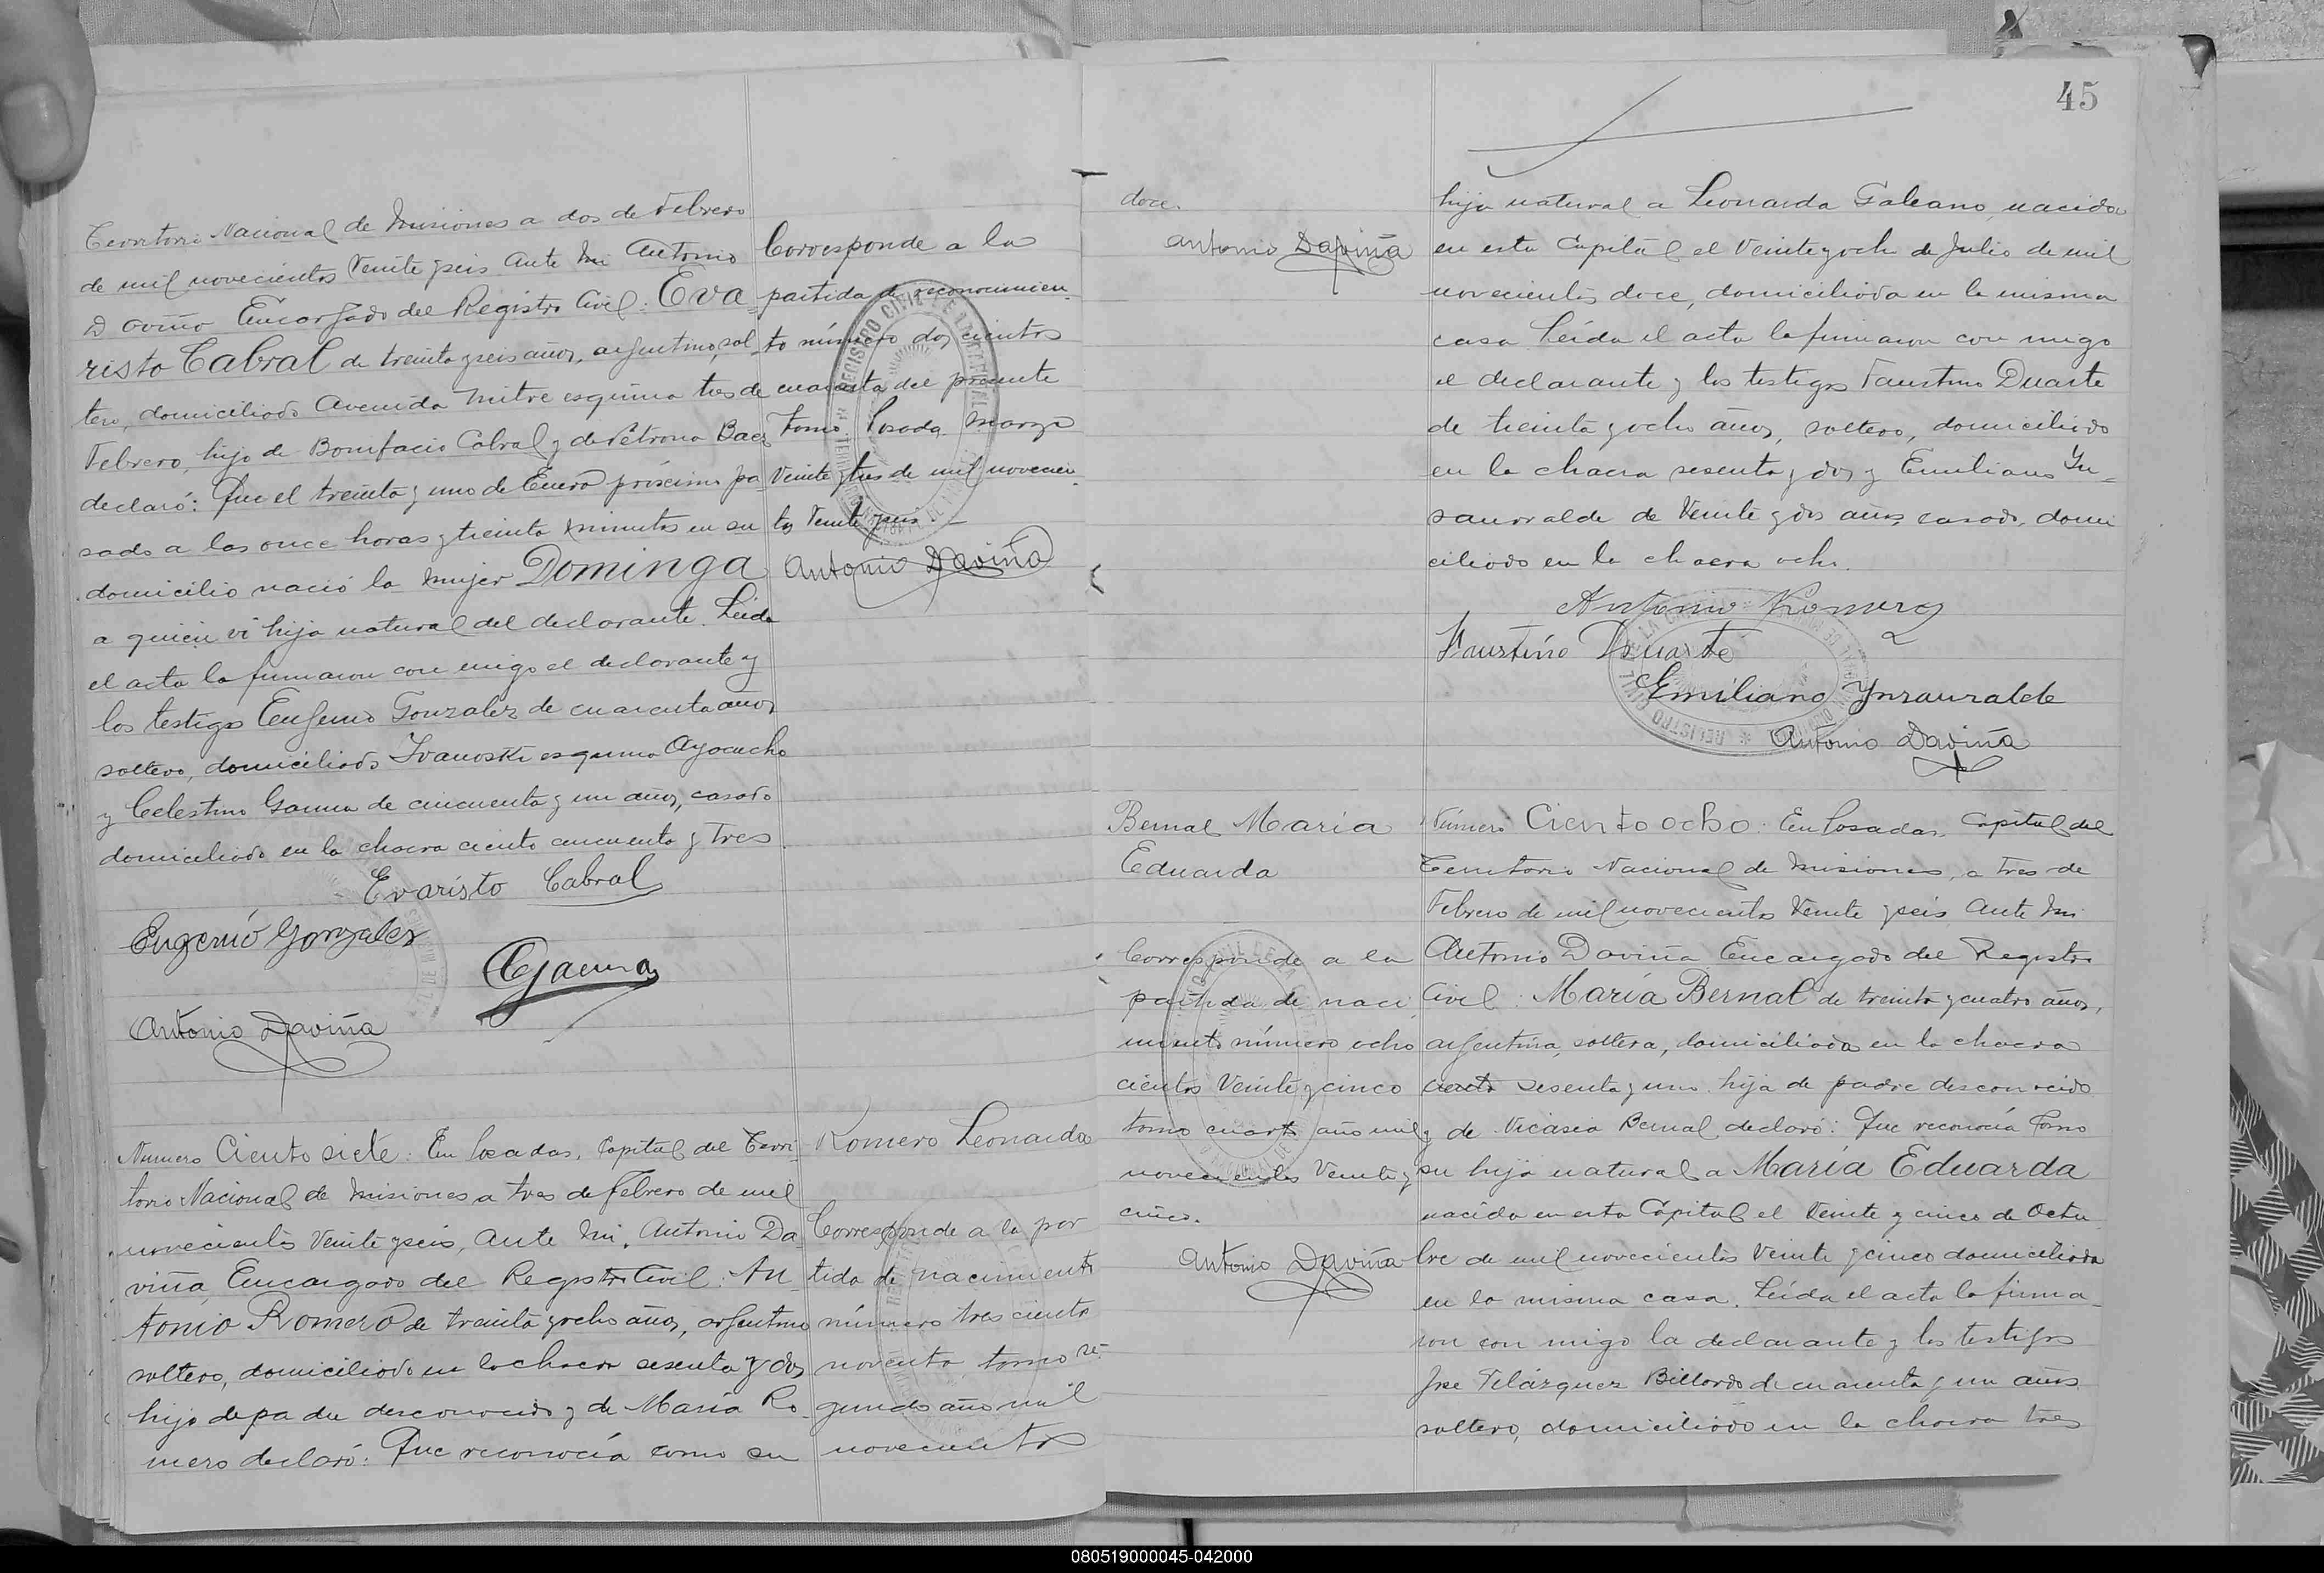 Territorio Nacional de Misiones a dos de Febrero
de mil novecientos Veinte y seis Ante Mi Antonio
Daviña Encargado del Registro Civil: Eva
risto Cabral de treinta y seis años, argentino, sol
tero, domiciliado Avenida Mitre esquina tres de
Febrero, hijo de Bonifacio Cabral y de Petrona Baez
declaró: Que el treinta y uno de Enero próximo pa
sado a las once horas y treinta minutos en su
domicilio nació la mujer Dominga
a quien vi hija natural del declarante. Leida
el acta la firmaron con migo el declarante y
los testigos Eugenio Gonzalez de cuarenta años
soltero, domiciliado Ivanoski esquina Ayacucho
y Celestino Gauna de cincuenta y un años, casado
domiciliado en la chacra ciento cincuenta y tres
Evaristo Cabral
Eugenio Gonzalez
CGauna
Antonio Daviña
Corresponde a la
partida de reconocimien
to número dos cientos
cuarenta del presente
tomo Posadas Marzo
Veinte y tres de mil novecien
tos Veinte y seis
Antonio Daviña
Numero Ciento siete: En Posadas, Capital del Terri-
torio Nacional de Misiones a tres de febrero de mil
novecientos Veinte y seis, Ante Mi, Antonio Da
viña, Encargado del Registro Civil: An
tonio Romero de treinta y ocho años, argentino
soltero, domiciliado en la chacra sesenta y dos
hijo de padre desconocido y de María Ro
mero declaró: Que reconocía como su
Romero Leonarda
Corresponde a la par
tida de nacimiento
número tres ciento
noventa, tomo se-
gundo año mil
novecientos
45
doce.
Antonio Daviña
hija natural a Leonarda Galeano, nacida
en esta Capital el Veinte y ocho de Julio de mil
novecientos doce, domiciliada en la misma
casa Leida el acta la firmaron con migo
el declarante y los testigos Faustino Duarte
de treinta y ocho años, soltero, domiciliado
en la chacra sesenta y dos y Emiliano Yn-
saurralde de Veinte y dos años, casado, domi
ciliado en la chacra ocho.
Antonio Romero
Faustino Duarte
Emiliano Ynsaurralde
Antonio Daviña
Bernal María
Eduarda
Corresponde a la
partida de naci
miento número ocho
cientos Veinte y cinco
tomo cuarto año mil
novecientos Veinte y
cinco.
Antonio Daviña
Número Ciento ocho: En Posadas, Capital del
Territorio Nacional de Misiones, a tres de
Febrero de mil novecientos Veinte y seis Ante Mi
Antonio Daviña Encargado del Registro
Civil: María Bernal de treinta y cuatro años,
argentina, soltera, domiciliada en la chacra
ciento sesenta y uno hija de padre desconocido
y de Nicasia Bernal declaró: Que reconocía como
su hija natural a María Eduarda
nacida en esta Capital el Veinte y cinco de Octu
bre de mil novecientos Veinte y cinco domiciliada
en la misma casa. Leida el acta la firma-
ron con migo la declarante y los testigos
Jose Velázquez Billordo de cuarenta y un años
soltero, domiciliado en la chacra tres
080519000045-042000